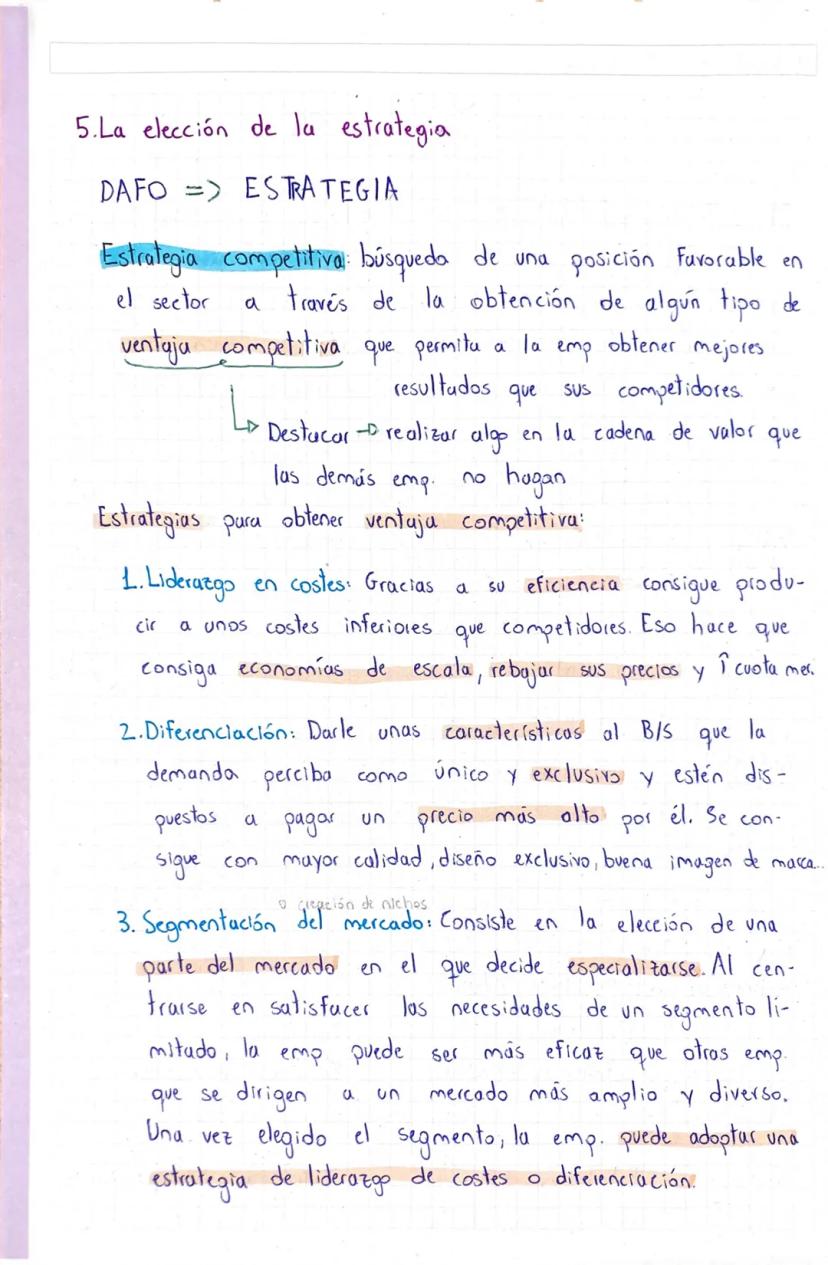 5.La elección de la estrategia
DAFO => ESTRATEGIA
Estrategia competitiva: búsqueda de una posición Favorable en
el sector a través de la obtención de algún tipo de
ventaja competitiva que permita a la emp obtener mejores
resultados que sus competidores.
Destacar → realizar algo en la cadena de valor que
las demás emp. no hagan
Estrategias para obtener ventaja competitiva:
1.Liderazgo en costes: Gracias a su eficiencia consigue produ-
cir a unos costes inferiores que competidores. Eso hace que
consiga economías de escala, rebajar sus precios y ↑ cuota mer.
2.Diferenciación: Darle unas características al B/S que la
demanda perciba como único y exclusivo y estén dis-
puestos a pagar un precio más alto por él. Se con-
sigue con mayor calidad, diseño exclusivo, buena imagen de marca...
o creación de nichos
3. Segmentación del mercado: Consiste en la elección de una
parte del mercado en el que decide especializarse. Al cen-
trarse en satisfacer las necesidades de un segmento li-
mitado, la emp puede ser más eficaz que otras emp.
que se dirigen a un mercado más amplio y diverso.
Una vez elegido el segmento, la emp. puede adoptar una
estrategia de liderazgo de costes o diferenciación.